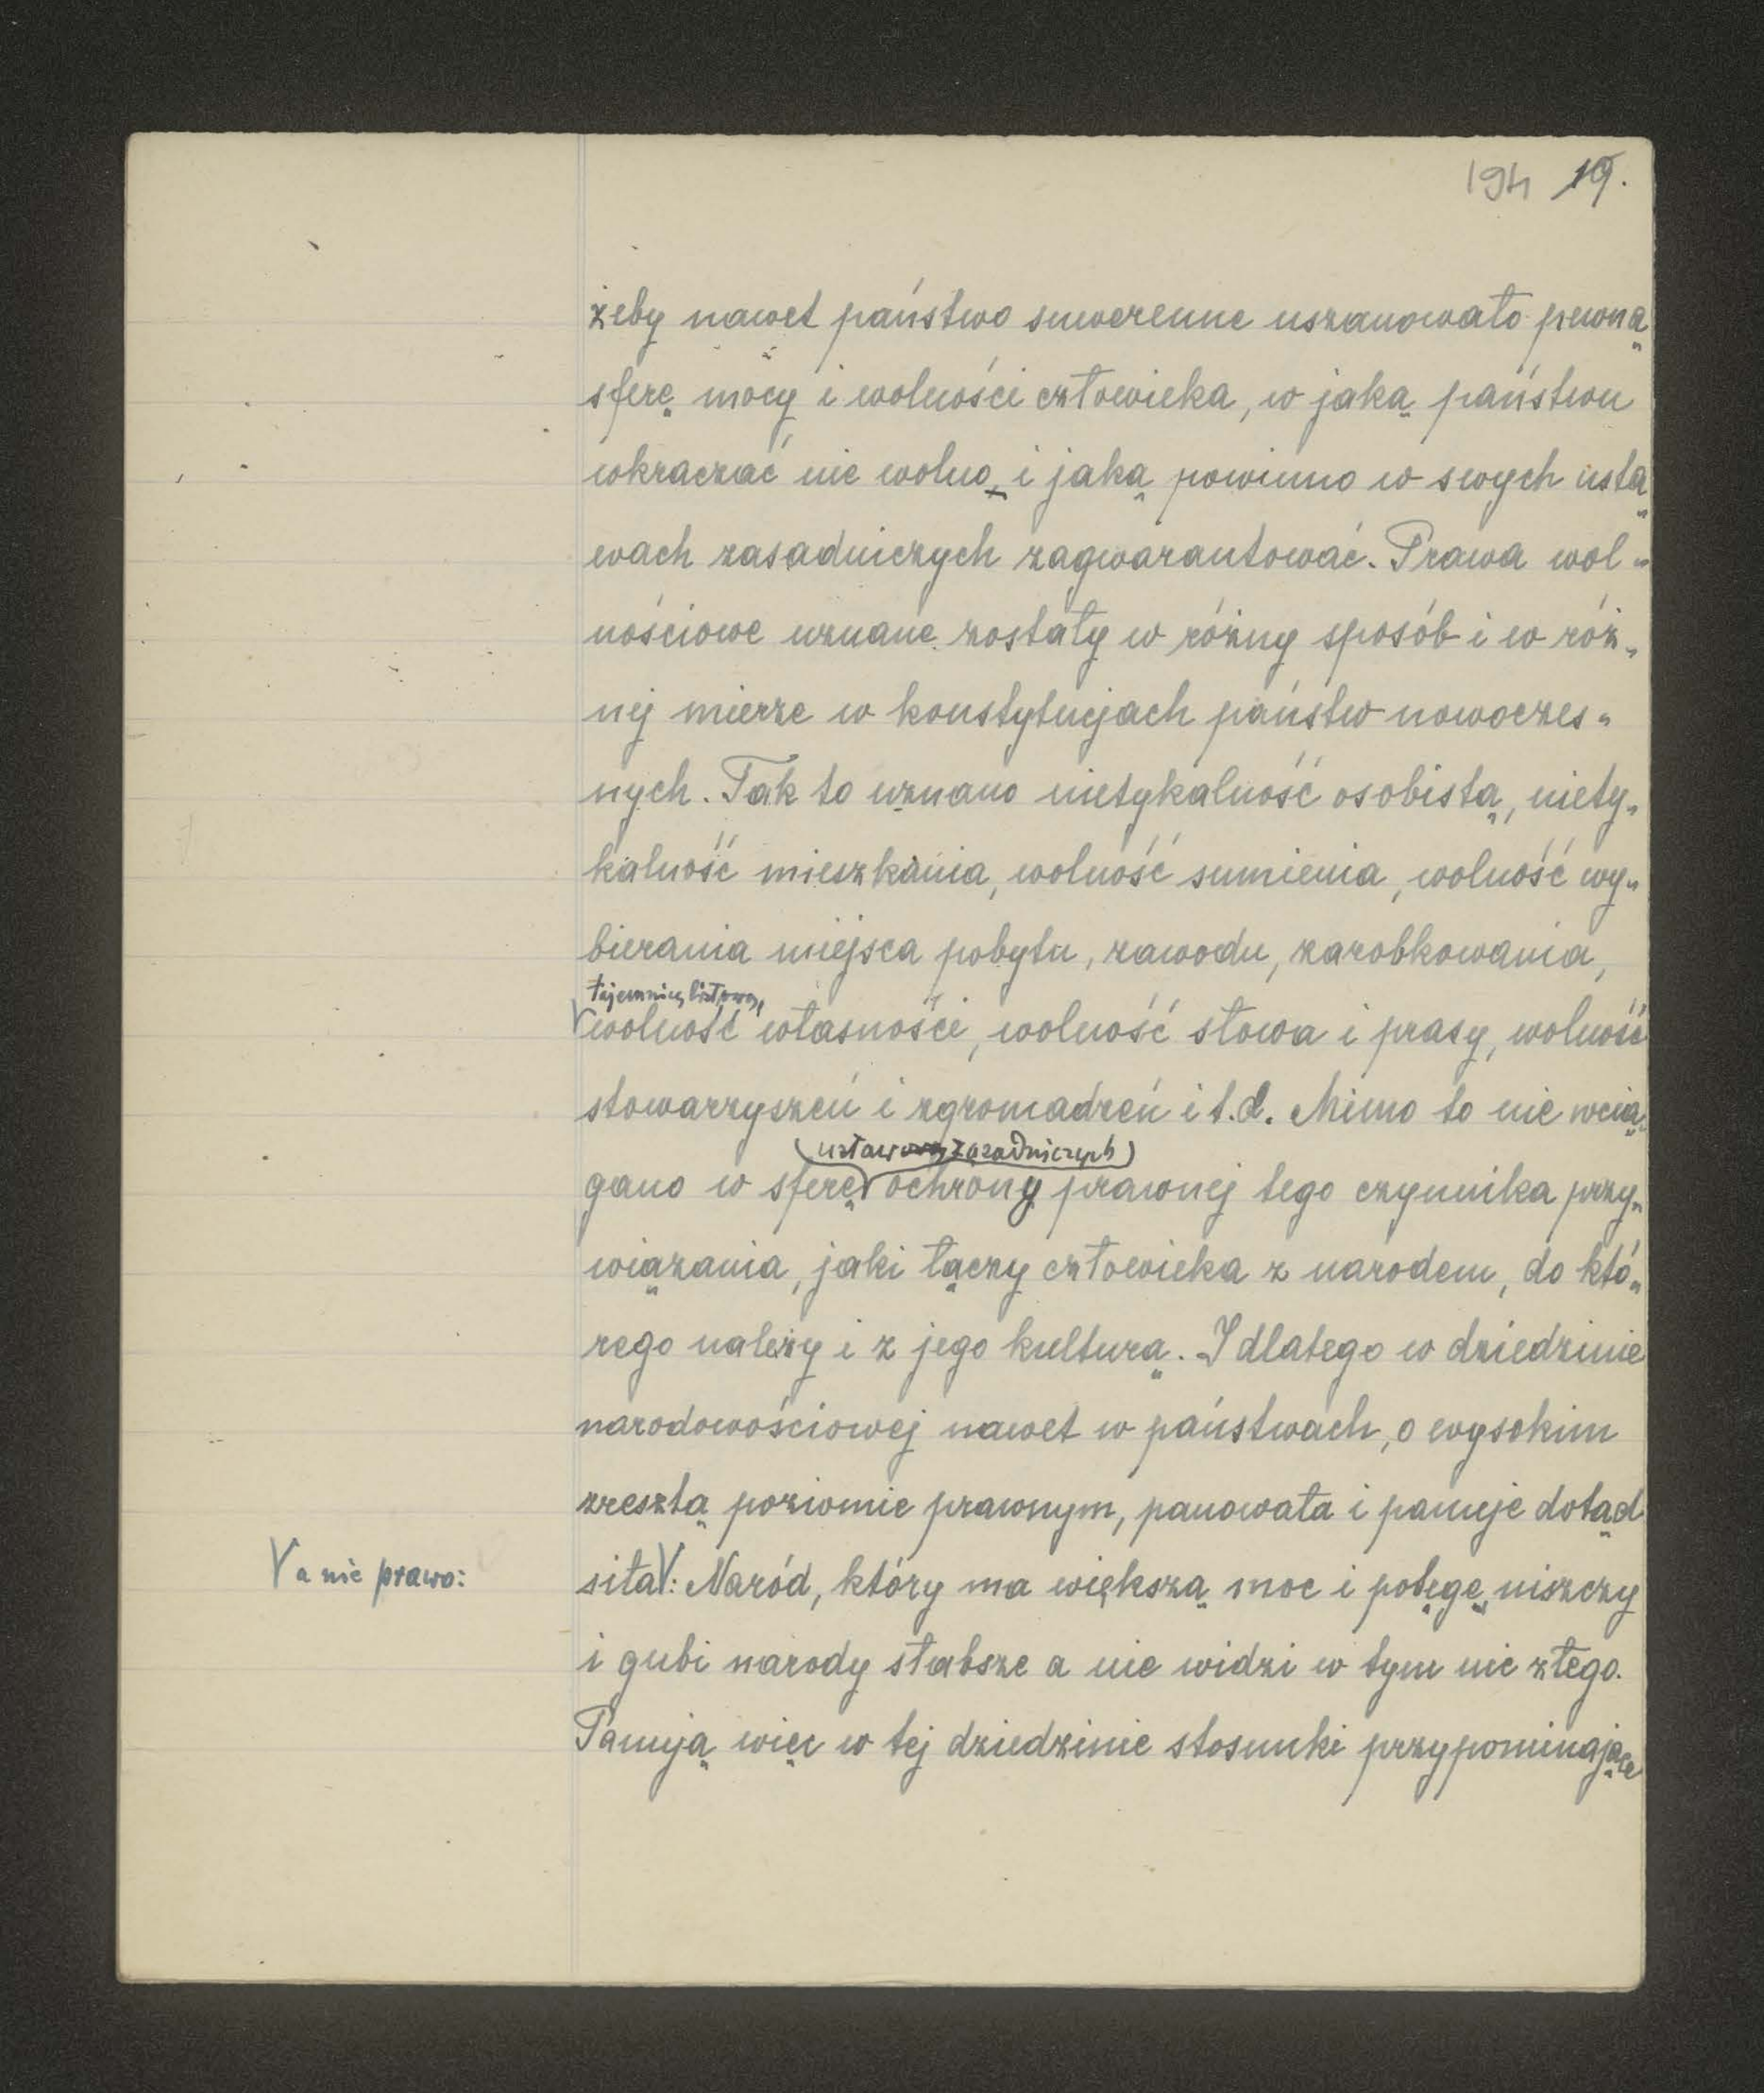 194 19.
żeby nawet państwo suwerenne uszanowało pewną
sferę mocy i wolności człowieka, w jaką państwu
wkraczać nie wolno, i jaką powinno w swych usta
wach zasadniczych zagwarantować. Prawa wol-
nościowe uznane zostały w różny sposób i w róż-
nej mierze w konstytucjach państw nowoczes-
nych. Tak to uznano nietykalność osobistą, niety-
kalność mieszkania, wolność sumienia, wolność wy-
bierania miejsca pobytu, zawodu, zarobkowania,
tajemnicę listową,
wolność własności, wolność słowa i prasy, wolność
stowarzyszeń i zgromadzeń i t.d. Mimo to nie wcią-
(ustaw zasadniczych)
gano w sferę ochrony prawnej tego czynnika przy-
wiązania, jaki łączy człowieka z narodem, do któ-
rego należy i z jego kulturą. I dlatego w dziedzinie
narodowościowej nawet w państwach, o wysokim
zresztą poziomie prawnym, panowała i panuje dotąd
V a nie prawo:
siła V: Naród, który ma większą moc i potęgę, niszczy
i gubi narody słabsze a nie widzi w tym nic złego.
Panują więc w tej dziedzinie stosunki przypominające